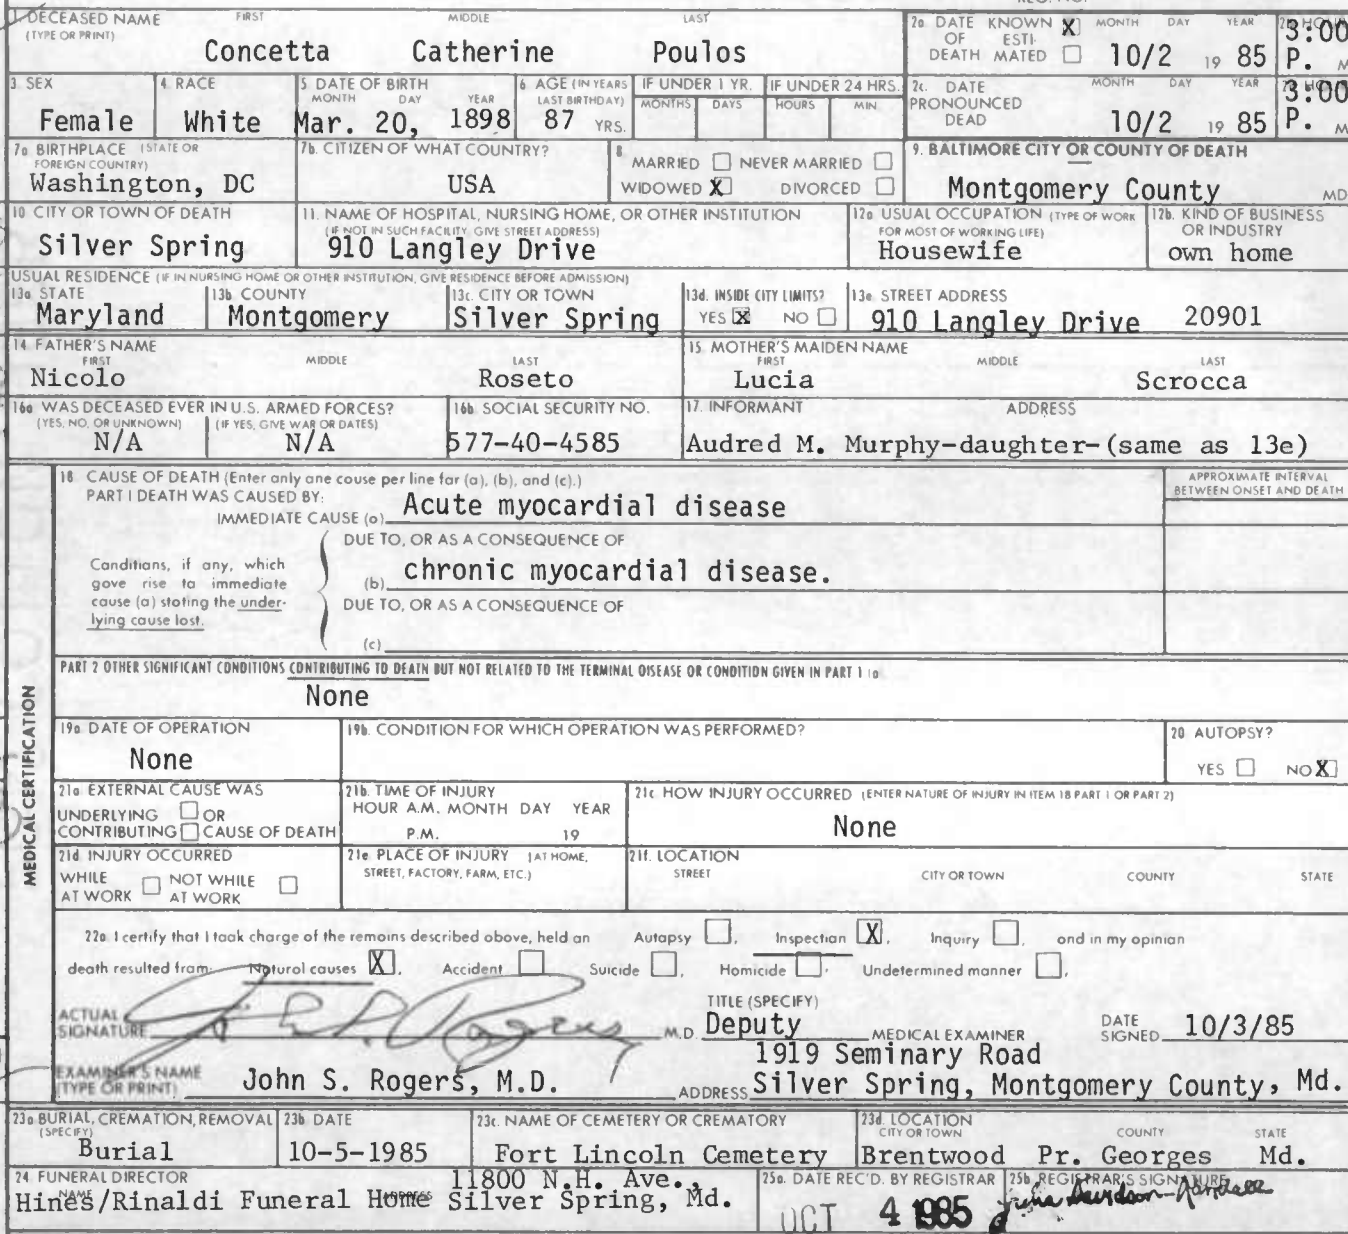 1 DECEASED NAME FIRST MIDDLE LAST
(TYPE OR PRINT)
Concetta Catherine Poulos
2a DATE KNOWN X MONTH DAY YEAR
OF ESTI-
DEATH MATED
10/2 19 85 3:00 P. M
3 SEX Female
4 RACE White
5 DATE OF BIRTH
MONTH DAY YEAR
Mar. 20, 1898
6 AGE (IN YEARS
LAST BIRTHDAY)
87 YRS.
IF UNDER 1 YR.
MONTHS DAYS
IF UNDER 24 HRS.
HOURS MIN.
2c. DATE MONTH DAY YEAR
PRONOUNCED
DEAD
10/2 19 85 3:00 P. M
7a BIRTHPLACE (STATE OR
FOREIGN COUNTRY)
Washington, DC
7b. CITIZEN OF WHAT COUNTRY?
USA
8 MARRIED NEVER MARRIED
WIDOWED X DIVORCED
9. BALTIMORE CITY OR COUNTY OF DEATH
Montgomery County MD
10 CITY OR TOWN OF DEATH
Silver Spring
11. NAME OF HOSPITAL, NURSING HOME, OR OTHER INSTITUTION
(IF NOT IN SUCH FACILITY, GIVE STREET ADDRESS)
910 Langley Drive
12a USUAL OCCUPATION (TYPE OF WORK
FOR MOST OF WORKING LIFE)
Housewife
12b. KIND OF BUSINESS
OR INDUSTRY
own home
USUAL RESIDENCE (IF IN NURSING HOME OR OTHER INSTITUTION, GIVE RESIDENCE BEFORE ADMISSION)
13a STATE
Maryland
13b COUNTY
Montgomery
13c. CITY OR TOWN
Silver Spring
13d. INSIDE CITY LIMITS?
YES X NO
13e STREET ADDRESS
910 Langley Drive 20901
14 FATHER'S NAME
FIRST MIDDLE LAST
Nicolo Roseto
15. MOTHER'S MAIDEN NAME
FIRST MIDDLE LAST
Lucia Scrocca
16a WAS DECEASED EVER IN U.S. ARMED FORCES?
(YES, NO, OR UNKNOWN) (IF YES, GIVE WAR OR DATES)
N/A N/A
16b SOCIAL SECURITY NO.
577-40-4585
17. INFORMANT ADDRESS
Audred M. Murphy-daughter-(same as 13e)
MEDICAL CERTIFICATION
18 CAUSE OF DEATH (Enter only one cause per line for (a), (b), and (c).)
PART I DEATH WAS CAUSED BY:
IMMEDIATE CAUSE (a) Acute myocardial disease
APPROXIMATE INTERVAL
BETWEEN ONSET AND DEATH
DUE TO, OR AS A CONSEQUENCE OF
Conditions, if any, which
gave rise to immediate
cause (a) stating the under-
lying cause last.
(b) chronic myocardial disease.
DUE TO, OR AS A CONSEQUENCE OF
(c)
PART 2 OTHER SIGNIFICANT CONDITIONS CONTRIBUTING TO DEATH BUT NOT RELATED TO THE TERMINAL DISEASE OR CONDITION GIVEN IN PART 1 (a)
None
19a DATE OF OPERATION
None
19b. CONDITION FOR WHICH OPERATION WAS PERFORMED?
20 AUTOPSY?
YES NO X
21a EXTERNAL CAUSE WAS
UNDERLYING OR
CONTRIBUTING CAUSE OF DEATH
21b. TIME OF INJURY
HOUR A.M. MONTH DAY YEAR
P.M. 19
21c HOW INJURY OCCURRED (ENTER NATURE OF INJURY IN ITEM 18 PART 1 OR PART 2)
None
21d INJURY OCCURRED
WHILE NOT WHILE
AT WORK AT WORK
21e PLACE OF INJURY (AT HOME,
STREET, FACTORY, FARM, ETC.)
21f. LOCATION
STREET CITY OR TOWN COUNTY STATE
22a I certify that I took charge of the remains described above, held an Autopsy , Inspection X, Inquiry , and in my opinion
death resulted from: Natural causes X, Accident Suicide , Homicide , Undetermined manner ,
ACTUAL
SIGNATURE John S. Rogers M.D.
TITLE (SPECIFY)
Deputy MEDICAL EXAMINER
DATE
SIGNED 10/3/85
EXAMINER'S NAME
(TYPE OR PRINT) John S. Rogers, M.D.
1919 Seminary Road
ADDRESS Silver Spring, Montgomery County, Md.
23a BURIAL, CREMATION, REMOVAL
(SPECIFY)
Burial
23b DATE
10-5-1985
23c. NAME OF CEMETERY OR CREMATORY
Fort Lincoln Cemetery
23d. LOCATION
CITY OR TOWN COUNTY STATE
Brentwood Pr. Georges Md.
24 FUNERAL DIRECTOR
NAME ADDRESS
11800 N.H. Ave.,
Hines/Rinaldi Funeral Home Silver Spring, Md.
25a. DATE REC'D. BY REGISTRAR
OCT 4 1985
25b. REGISTRAR'S SIGNATURE
Julia Davidson-Randall